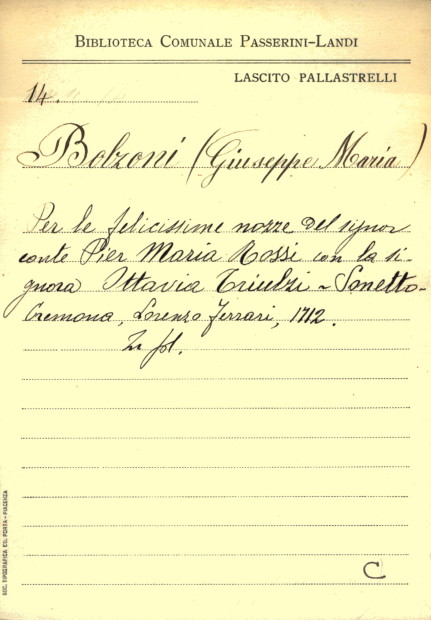 BIBLIOTECA COMUNALE PASSERINI-LANDI
LASCITO PALLASTRELLI
14.
Bolzoni (Giuseppe Maria)
Per le felicissime nozze del signor
conte Pier Maria Rossi con la si-
gnora Ottavia Triulzi - Sonetto -
Cremona, Lorenzo Ferrari, 1712.
In fol.
C
SOC. TIPOGRAFICA ED. PORTA - PIACENZA